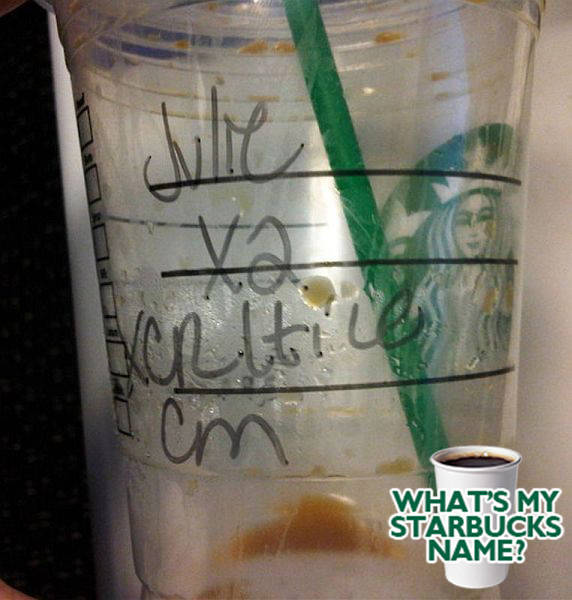 Julie
x2
xCR ltice
cm
WHAT'S MY
STARBUCKS
NAME?